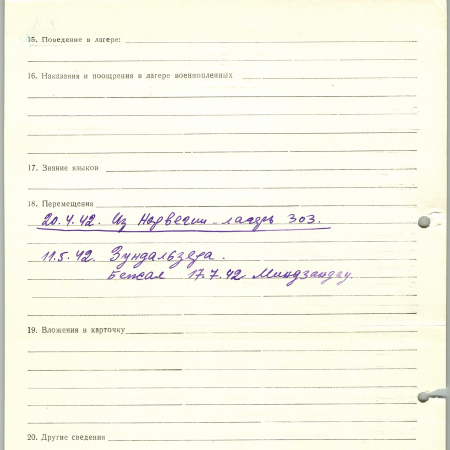 15. Поведение в лагере:
16. Наказания и поощрения в лагере военнопленных
17. Знание языков
18. Перемещения
20.4.42. Из Норвегии - лагерь 303.
11.5.42. Зундальзеда.
Бежал 17.7.42 Миндзандау.
19. Вложения в карточку
20. Другие сведения